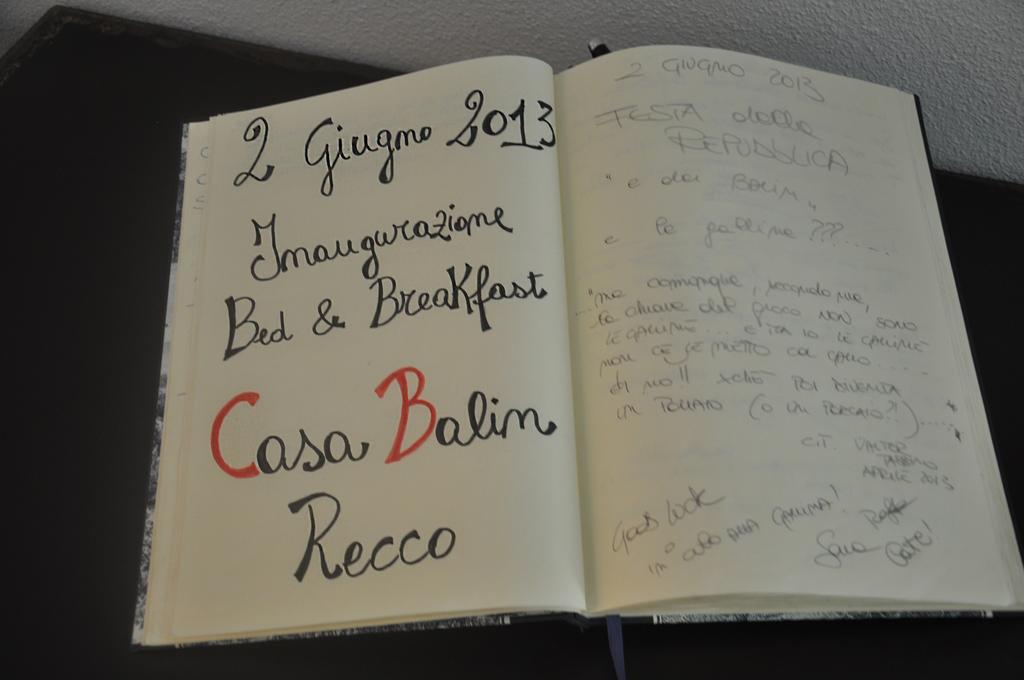 2 Giugno 2013
Inaugurazione
Bed & Breakfast
Casa Balin
Recco
2 GIUGNO 2013
FESTA della
REPUBBLICA
"e dai BALIN"
e le galline ???.....
"ma comunque, secondo me,
la chiave del gioco NON sono
LE GALLINE... E ... IO LE GALLINE
NON CE LE METTO
di no!! xchè POI DIVENTA
UN POLLAIO (O UN PORCAIO?!)
CIT. VALTER
APRILE 2013
GOOD LOOK
IN CULO ALLA GALLINA!